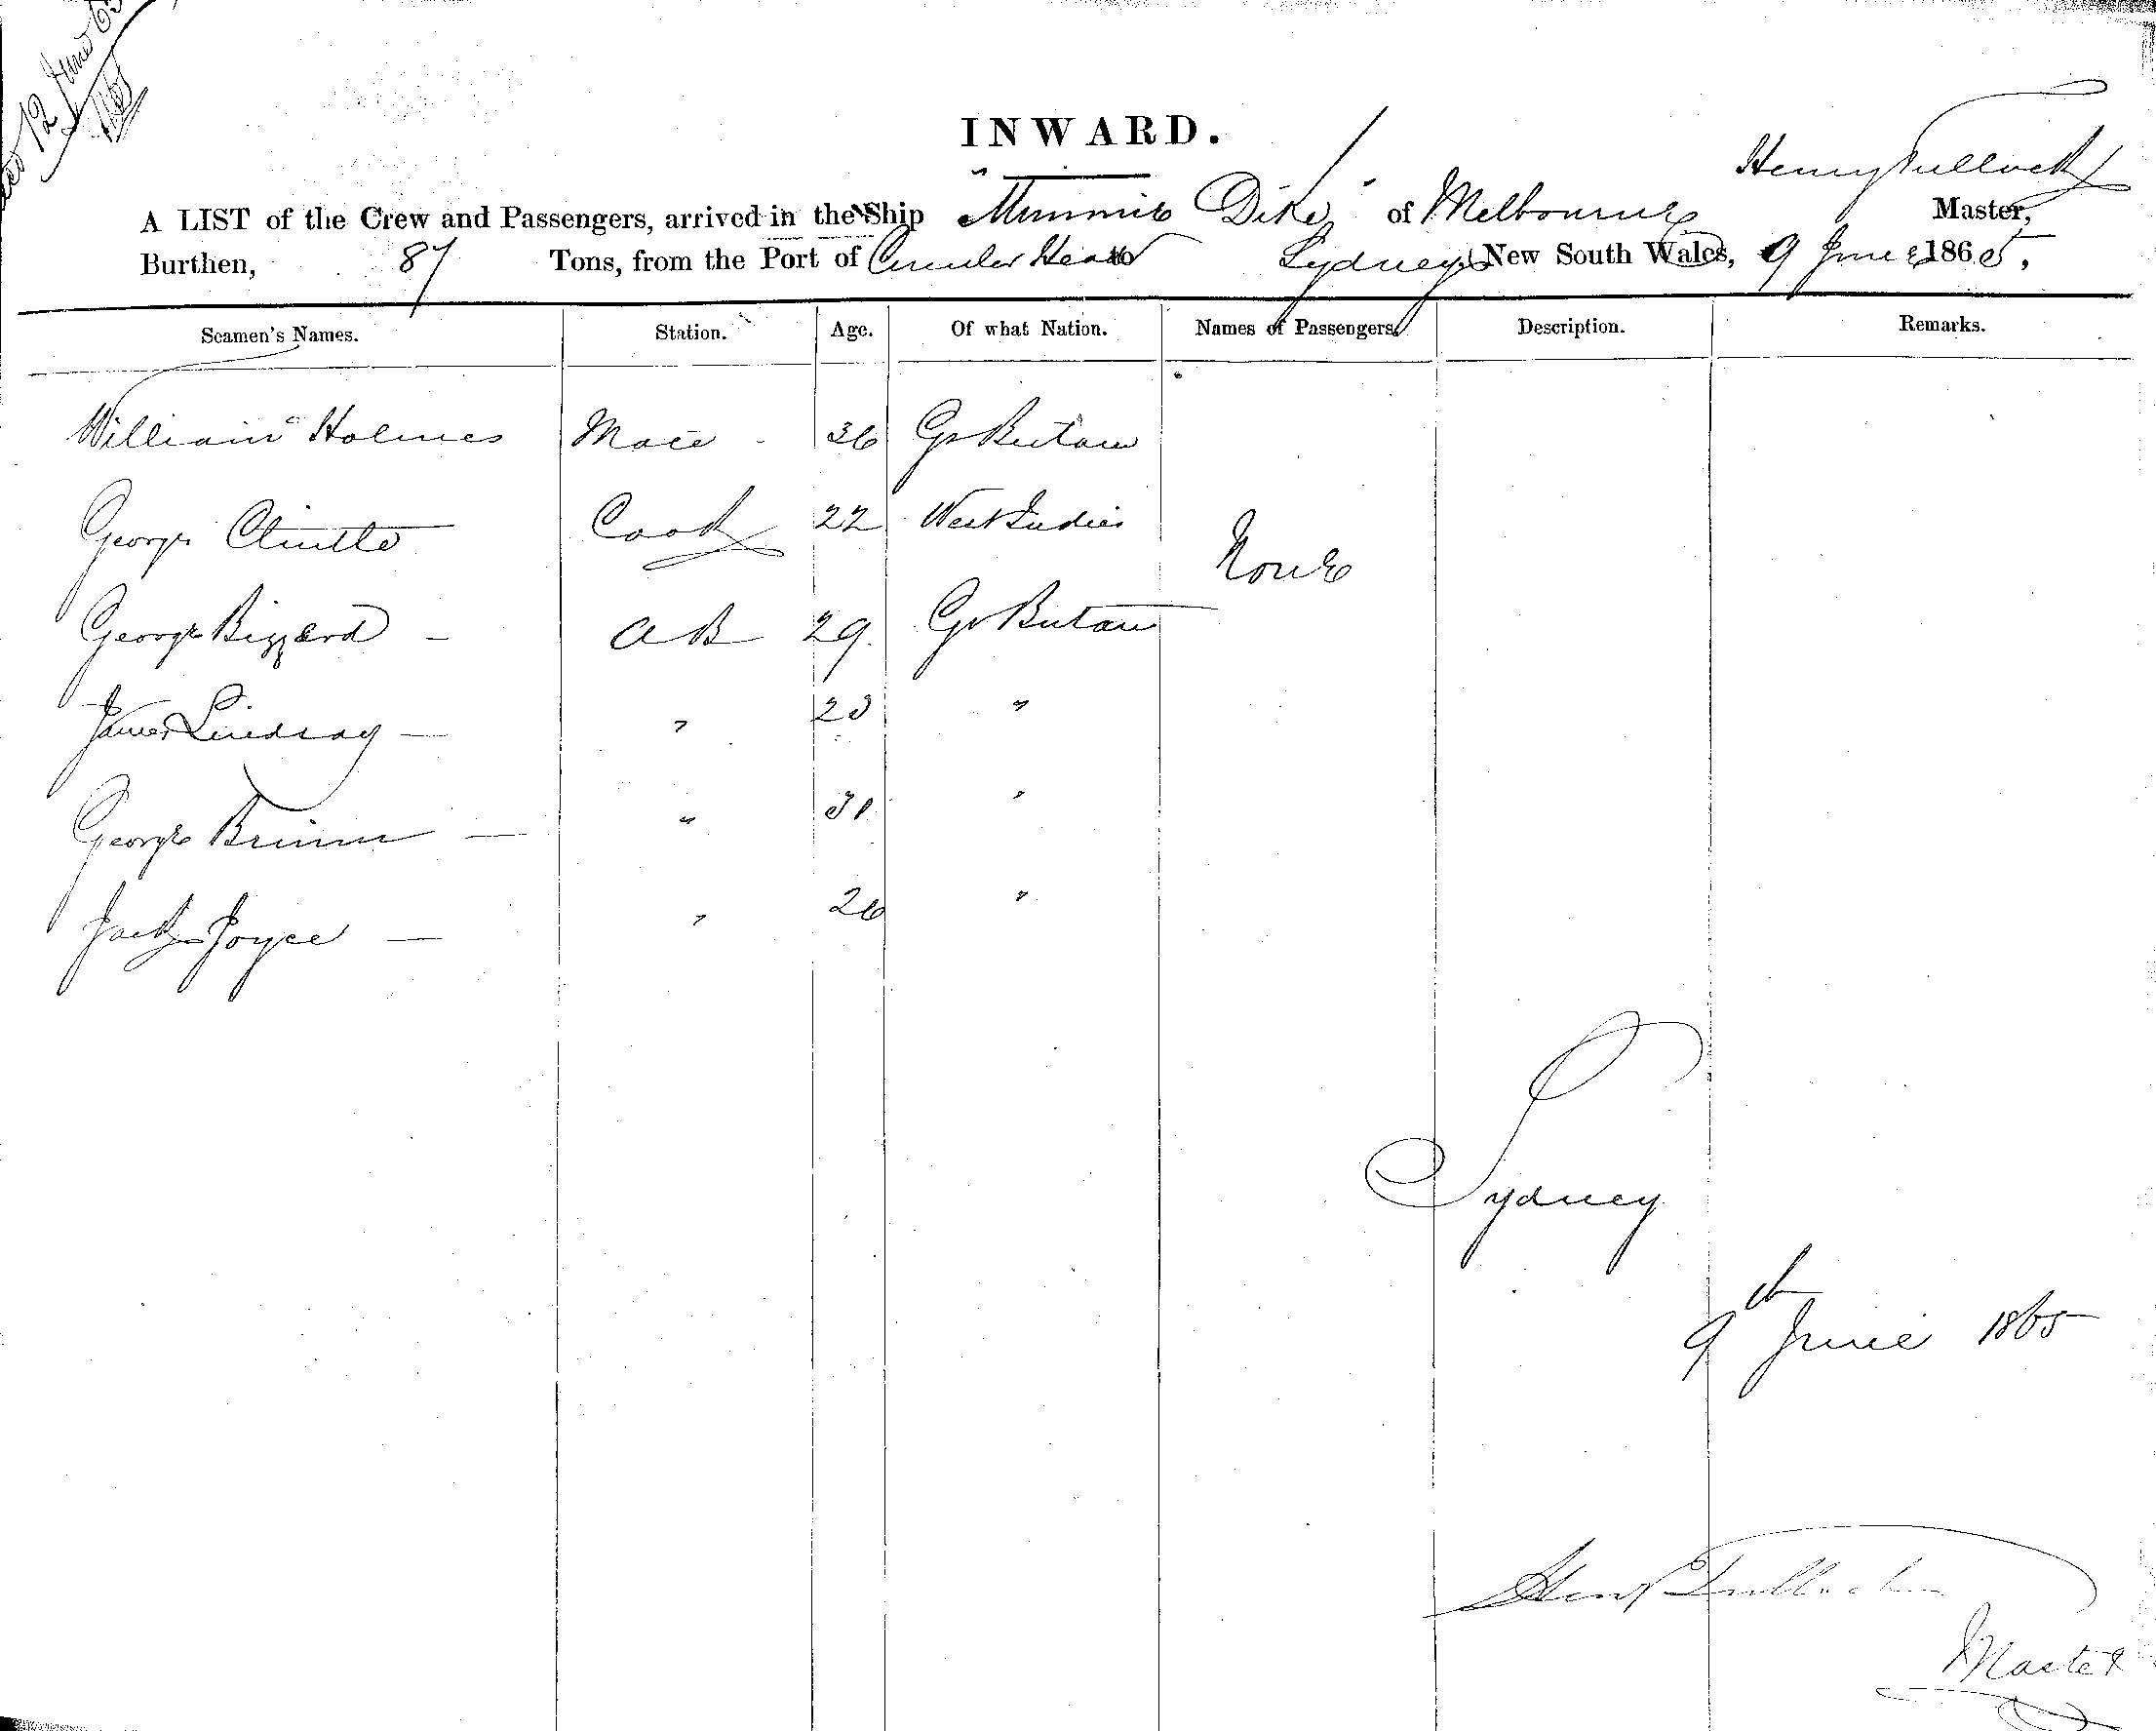 12 June 65
INWARD.
Henry Tulloch
A LIST of the Crew and Passengers, arrived in the Ship "Minnie Dike" of Melbourne Master,
Burthen, 87 Tons, from the Port of Circular Head Sydney New South Wales, 9 June 1865,
Seamen's Names. Station. Age. Of what Nation. Names of Passengers. Description. Remarks.
William Holmes Mate 36 Gr Britain
George Cook 22 West Indies
None
George Bizzard AB 29 Gr Britain
James Lindsay " "
George " 31 "
Jack Joyce " 26 "
Sydney
9th June 1865
Henry Tulloch
Master